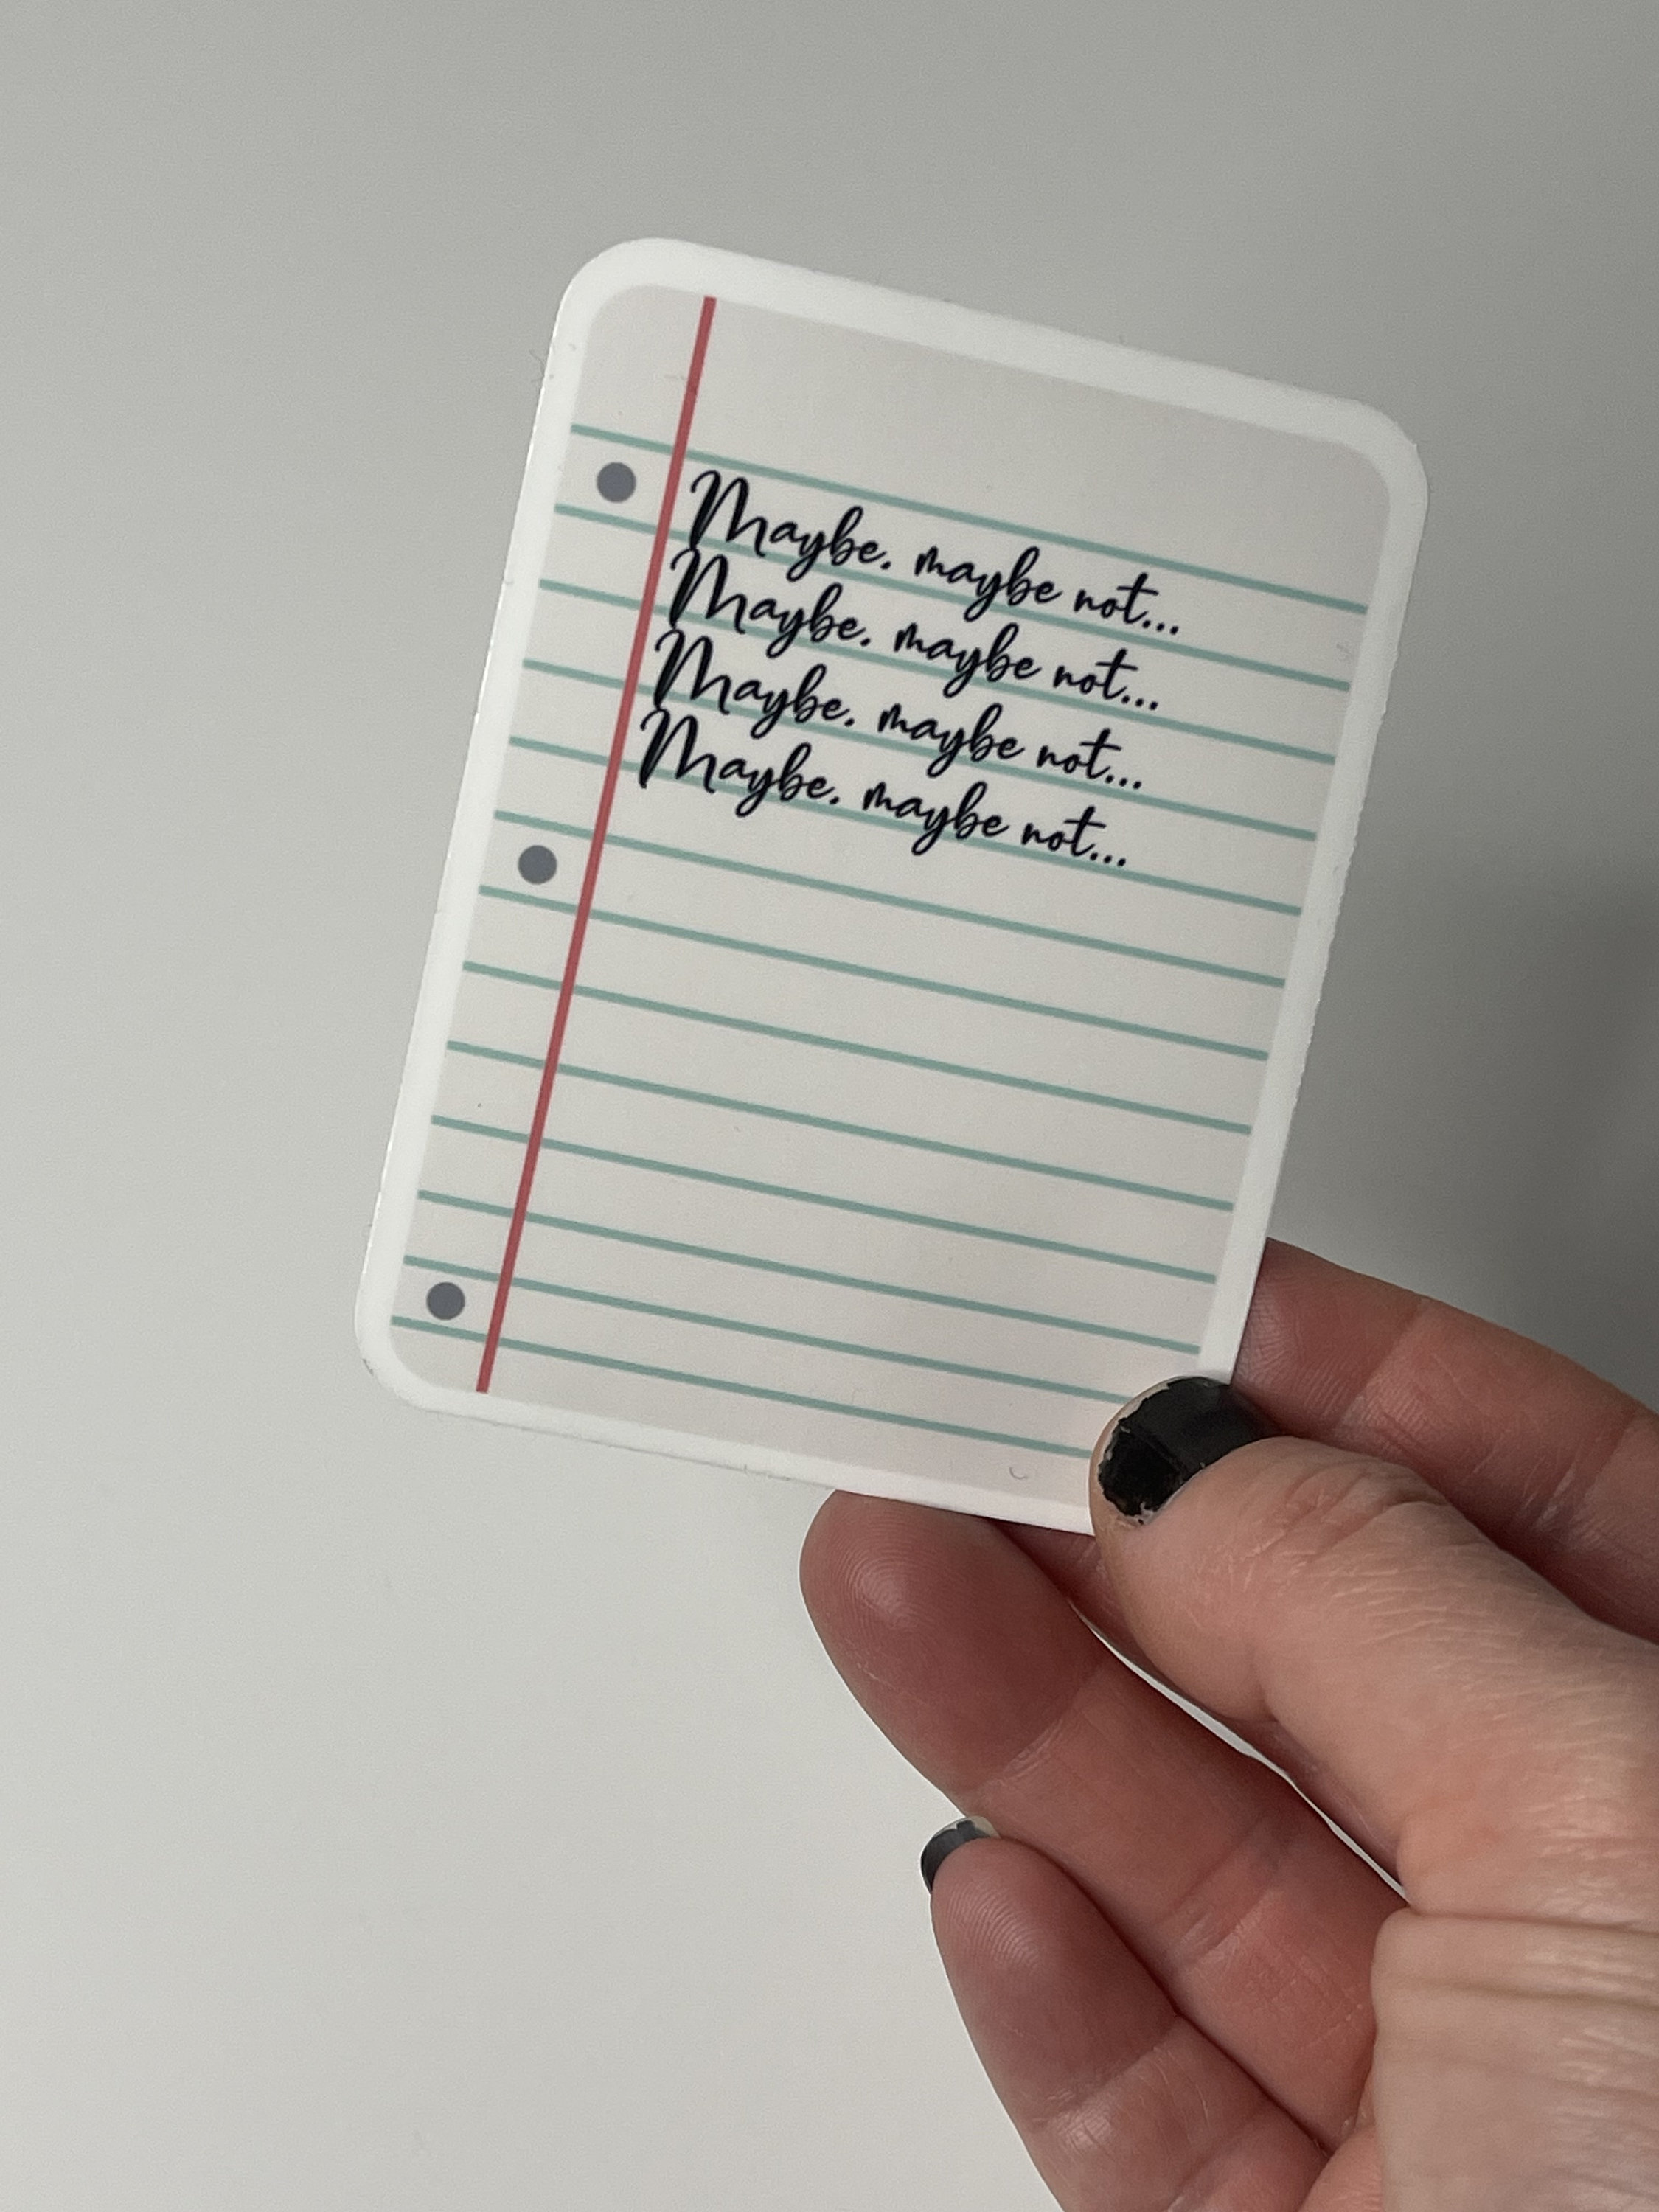 Maybe. maybe not...
Maybe. maybe not...
Maybe. maybe not...
Maybe. maybe not...